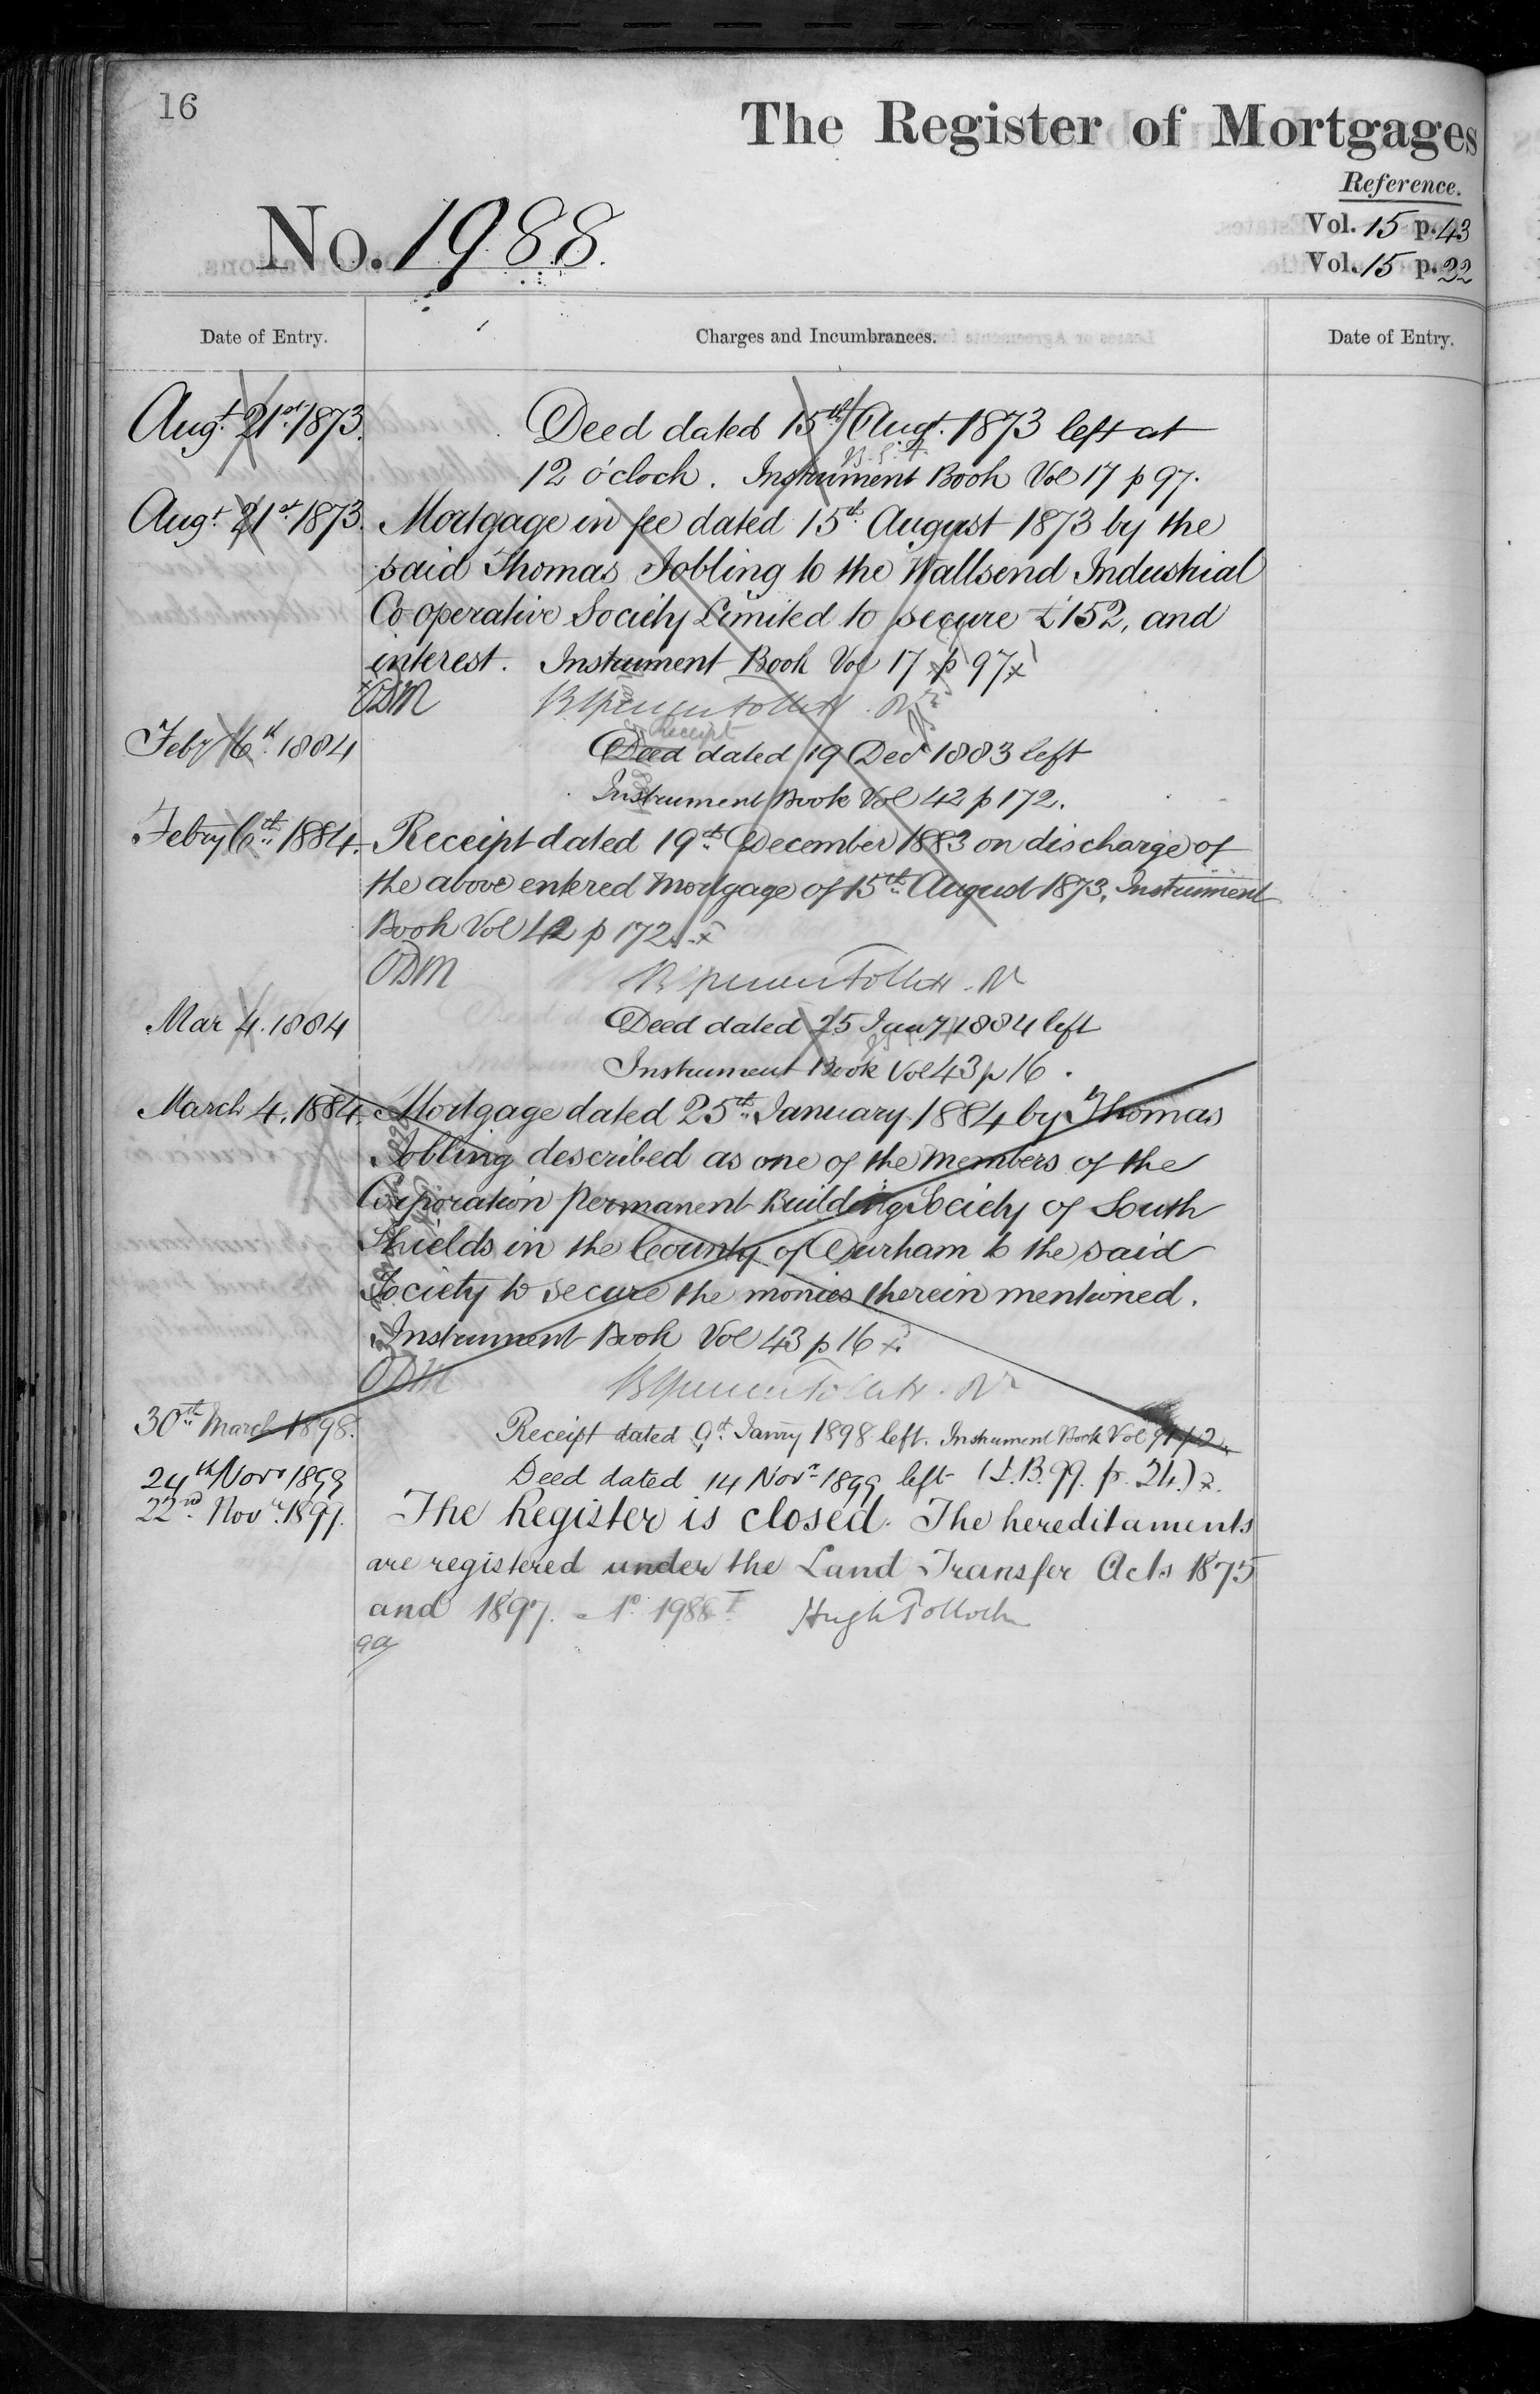 16
The Register of Mortgages
Reference.
No. 1988.
Vol. 15 p. 43
Vol. 15 p. 22
Date of Entry.
Charges and Incumbrances.
Date of Entry.
Augt. 21st. 1873.
Deed dated 15th Augt. 1873 left at
12 o'clock. Instrument Book Vol 17 p 97.
Augt 21st. 1873.
Mortgage in fee dated 15th. August 1873 by the
said Thomas Jobling to the Wallsend Industrial
Cooperative Society Limited to secure £152, and
interest. Instrument Book Vol 17 p 97 x
ODM
Feby 6th. 1884
Receipt
Deed dated 19 Decr 1883 left
Instrument Book Vol 42 p 172.
Febry 6th. 1884.
Receipt dated 19th. December 1883 on discharge of
the above entered mortgage of 15th. August 1873, Instrument
Book Vol 42 p 172. x
ODM
Mar 4. 1884
Deed dated 25 Jany 1884 left
Instrument Book Vol 43 p 16.
March 4. 1884.
Mortgage dated 25th. January 1884 by Thomas
Jobling described as one of the members of the
Corporation Permanent Building Society of South
Shields in the County of Durham to the said
Society to secure the monies therein mentioned.
Instrument Book Vol 43 p 16 x.
ODM
30th. March 1898.
Receipt dated 9th. Janry 1898 left. Instrument Book Vol 91 p 2.
24th Novr 1899
Deed dated 14 Novr 1899 left (I.B. 99. p. 24.) x.
22nd. Novr. 1899.
The Register is closed. The hereditaments
are registered under the Land Transfer Acts 1875
and 1897. No. 1988 Hugh Pollock